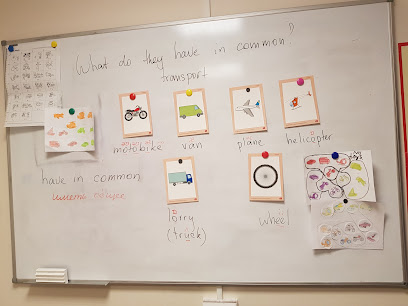 What do they have in common?
transport
motobike van plane helicopter
have in common
иметь общее
lorry wheel
(truck)